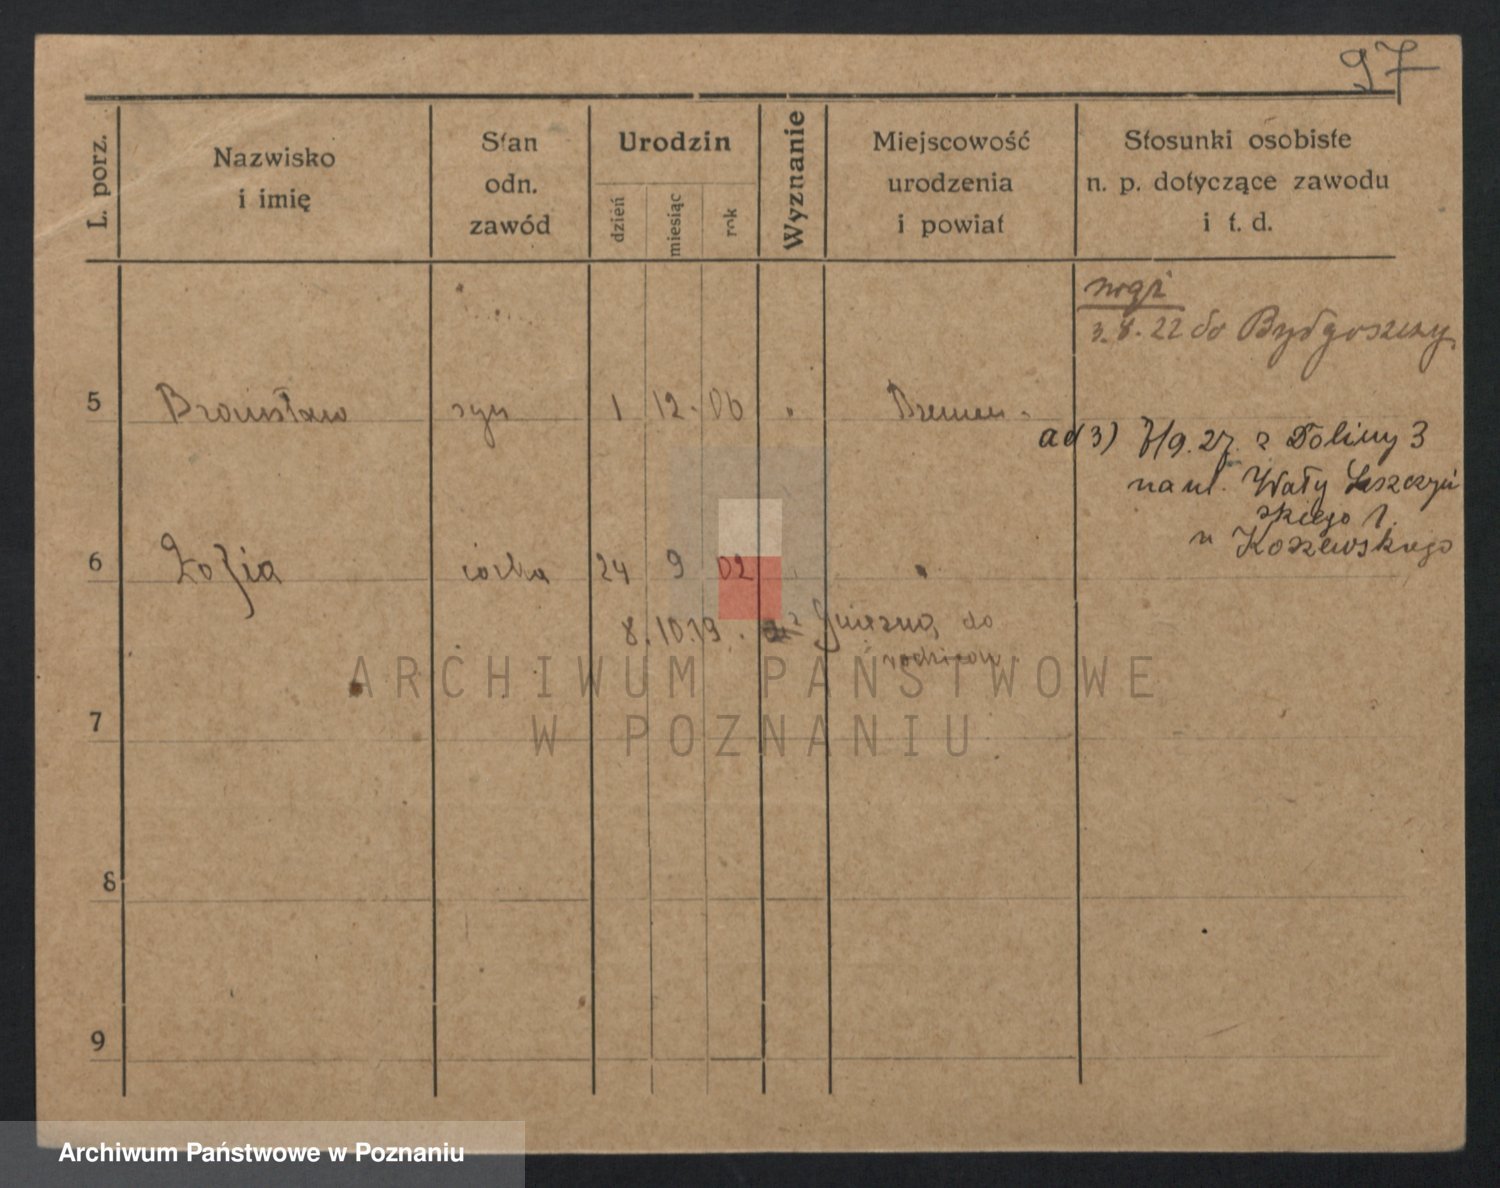 97
L. porz.
Nazwisko
i imię
Stan
odn.
zawód
Urodzin
dzień
miesiąc
rok
Wyznanie
Miejscowość
urodzenia
i powiat
Stosunki osobiste
n. p. dotyczące zawodu
i t. d.
3. 8. 22 do Bydgoszczy
5 Bronisław syn 1 12. 06 Bremen.
ad 3) 7/9. 27. z Doliny 3
na ul. Wały Leszczyń
skiego 1.
u Koszewskiego
6 Zofia córka 24 9 02
8. 10.19. z Gniezna, do
rodziców.
ARCHIWUM PAŃSTWOWE
W POZNANIU
7
8
9
Archiwum Państwowe w Poznaniu